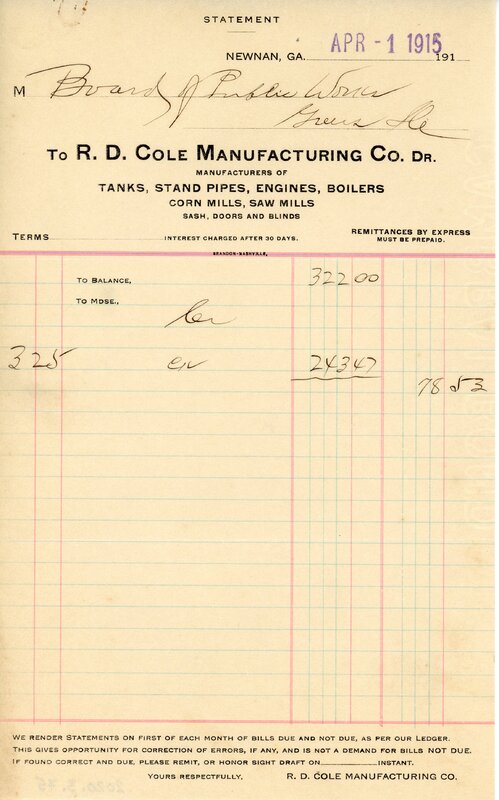 STATEMENT
NEWNAN, GA. APR - 1 1915 191
M Board of Public Works
TO R. D. COLE MANUFACTURING CO. DR.
MANUFACTURERS OF
TANKS, STAND PIPES, ENGINES, BOILERS
CORN MILLS, SAW MILLS
SASH, DOORS AND BLINDS
TERMS INTEREST CHARGED AFTER 30 DAYS. REMITTANCES BY EXPRESS
MUST BE PREPAID.
BRANDON-NASHVILLE,
TO BALANCE, 322 00
TO MDSE.,
Cr
3 25 243 47
78 53
WE RENDER STATEMENTS ON FIRST OF EACH MONTH OF BILLS DUE AND NOT DUE, AS PER OUR LEDGER.
THIS GIVES OPPORTUNITY FOR CORRECTION OF ERRORS, IF ANY, AND IS NOT A DEMAND FOR BILLS NOT DUE.
IF FOUND CORRECT AND DUE, PLEASE REMIT, OR HONOR SIGHT DRAFT ON INSTANT.
YOURS RESPECTFULLY, R. D. COLE MANUFACTURING CO.